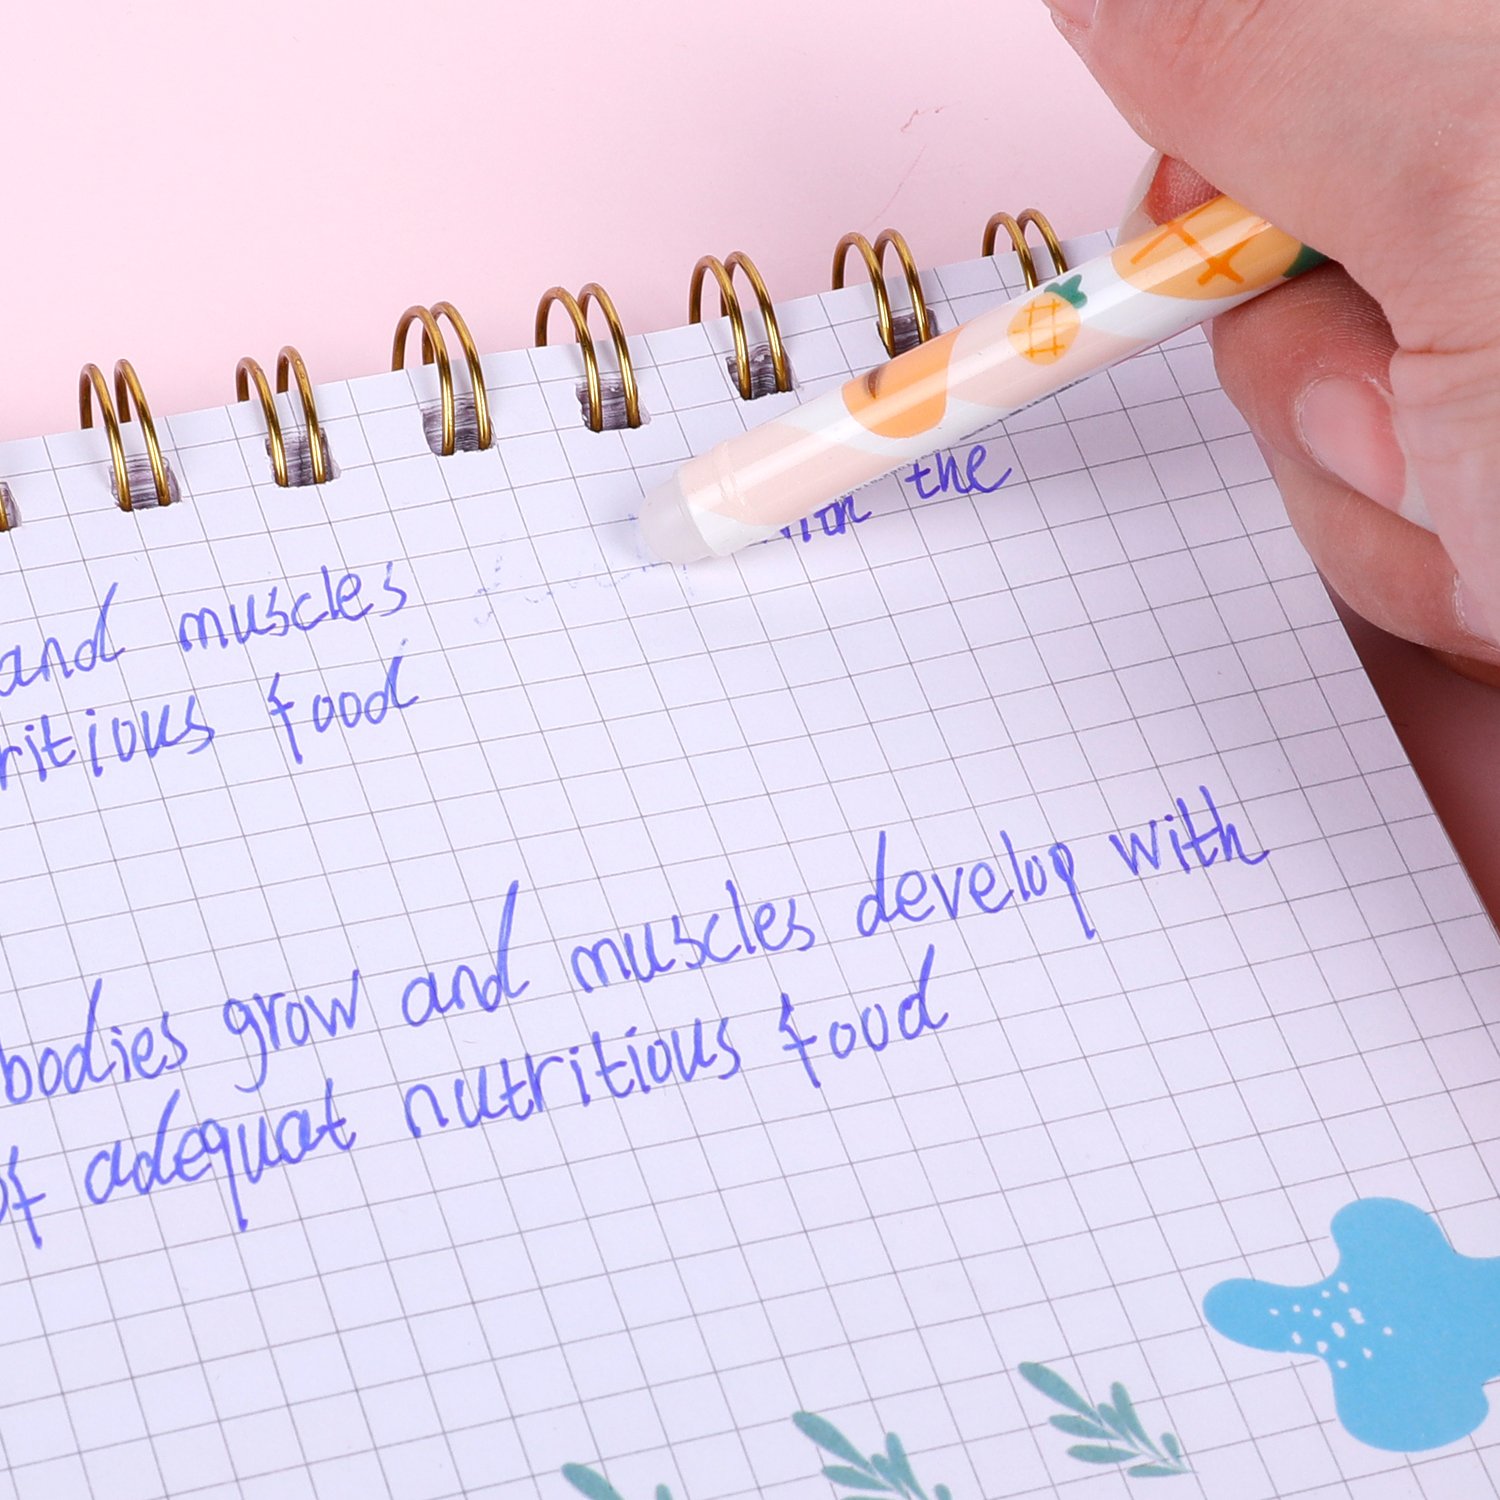 and muscles with the
ritious food
bodies grow and muscles develop with
of adequat nutritious food